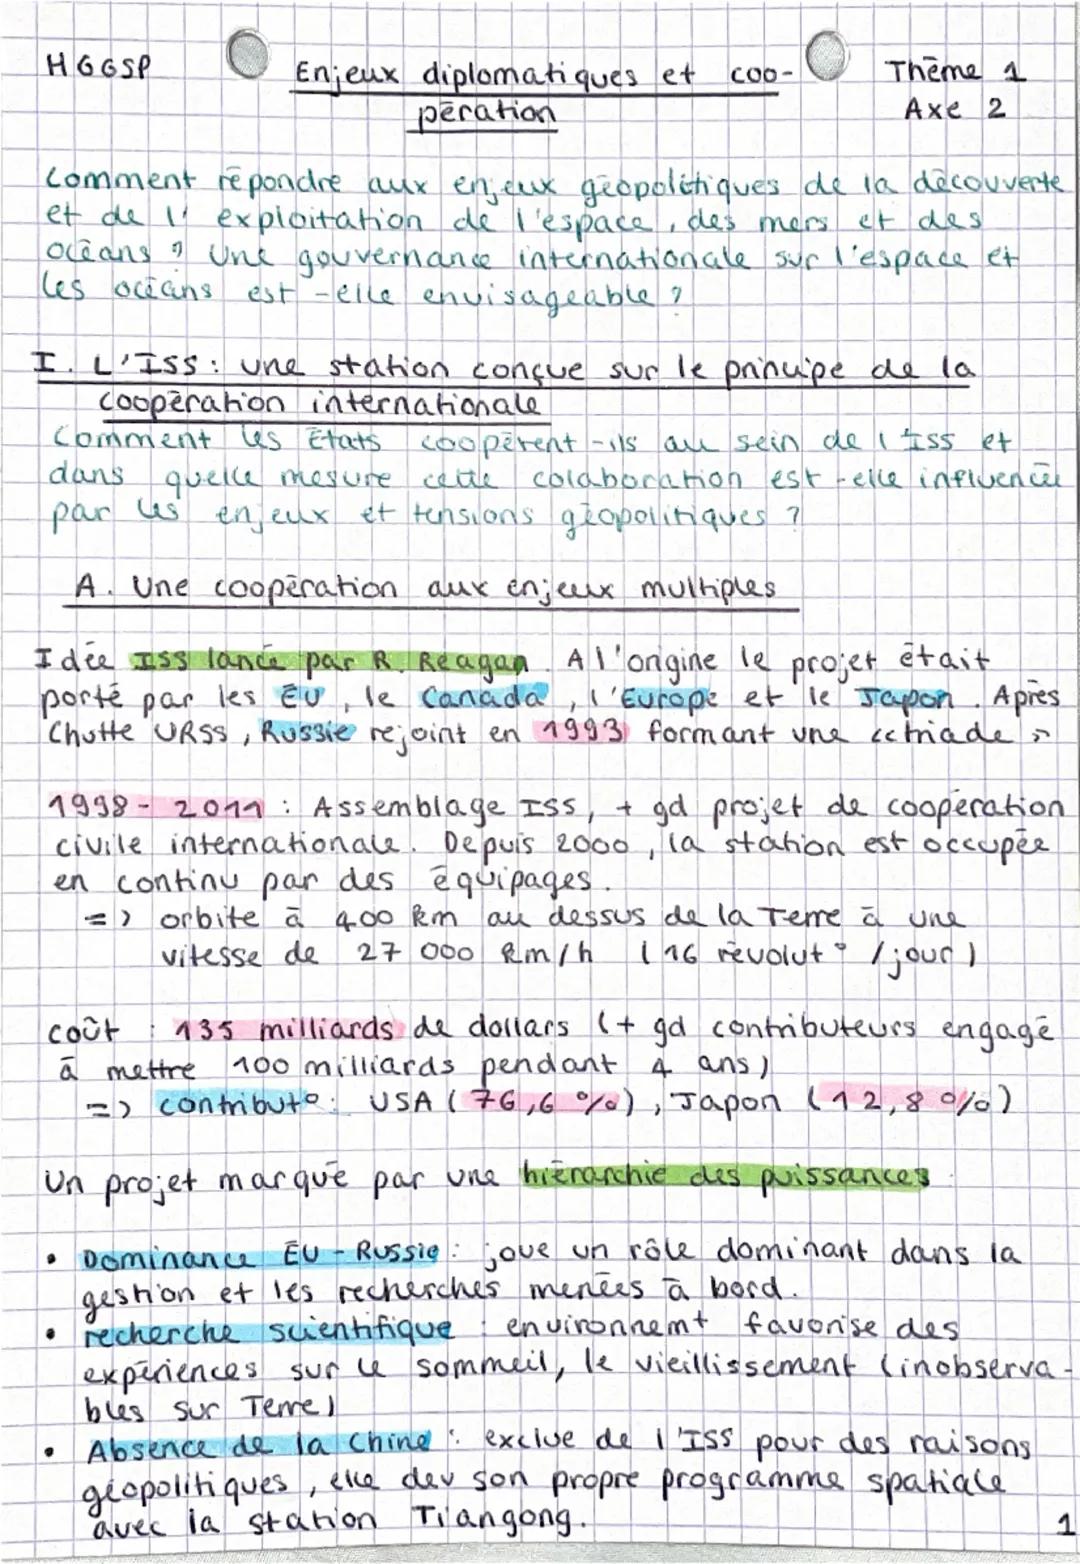 HGGSP
Enjeux diplomatiques et coo-
pération
Thème 1
Axe 2
Comment répondre aux enjeux géopolitiques de la découverte
et de l'exploitation de l'espace, des mers et des
océans ? Une gouvernance internationale sur l'espace et
les océans est-elle envisageable ?
I. L'ISS : une station conçue sur le principe de la
coopération internationale
Comment les États coopèrent-ils au sein de l'ISS et
dans quelle mesure cette colaboration est-elle influencée
par les enjeux et tensions géopolitiques ?
A. Une coopération aux enjeux multiples
Idée ISS lancé par R. Reagan. A l'origine le projet était
porté par les ÉU, le Canada, l'Europe et le Japon. Après
Chutte URSS, Russie rejoint en 1993 formant une « triade »
1998 - 2011 : Assemblage ISS, + gd projet de coopération
civile internationale. Depuis 2000, la station est occupée
en continu par des équipages.
=> orbite à 400 km au dessus de la Terre à une
vitesse de 27 000 km/h (16 révolut° / jour)
coût : 135 milliards de dollars (+ gd contributeurs engagé
à mettre 100 milliards pendant 4 ans)
=> contribut° : USA (76,6 %), Japon (12,8 %)
Un projet marqué par une hiérarchie des puissances.
• Dominance ÉU - Russie : joue un rôle dominant dans la
gestion et les recherches menées à bord.
• recherche scientifique : environnemt favorise des
expériences sur le sommeil, le vieillissement (inobserva-
bles sur Terre)
• Absence de la Chine : exclue de l'ISS pour des raisons
géopolitiques, elle dev son propre programme spatiale
avec la station Tiangong.
1